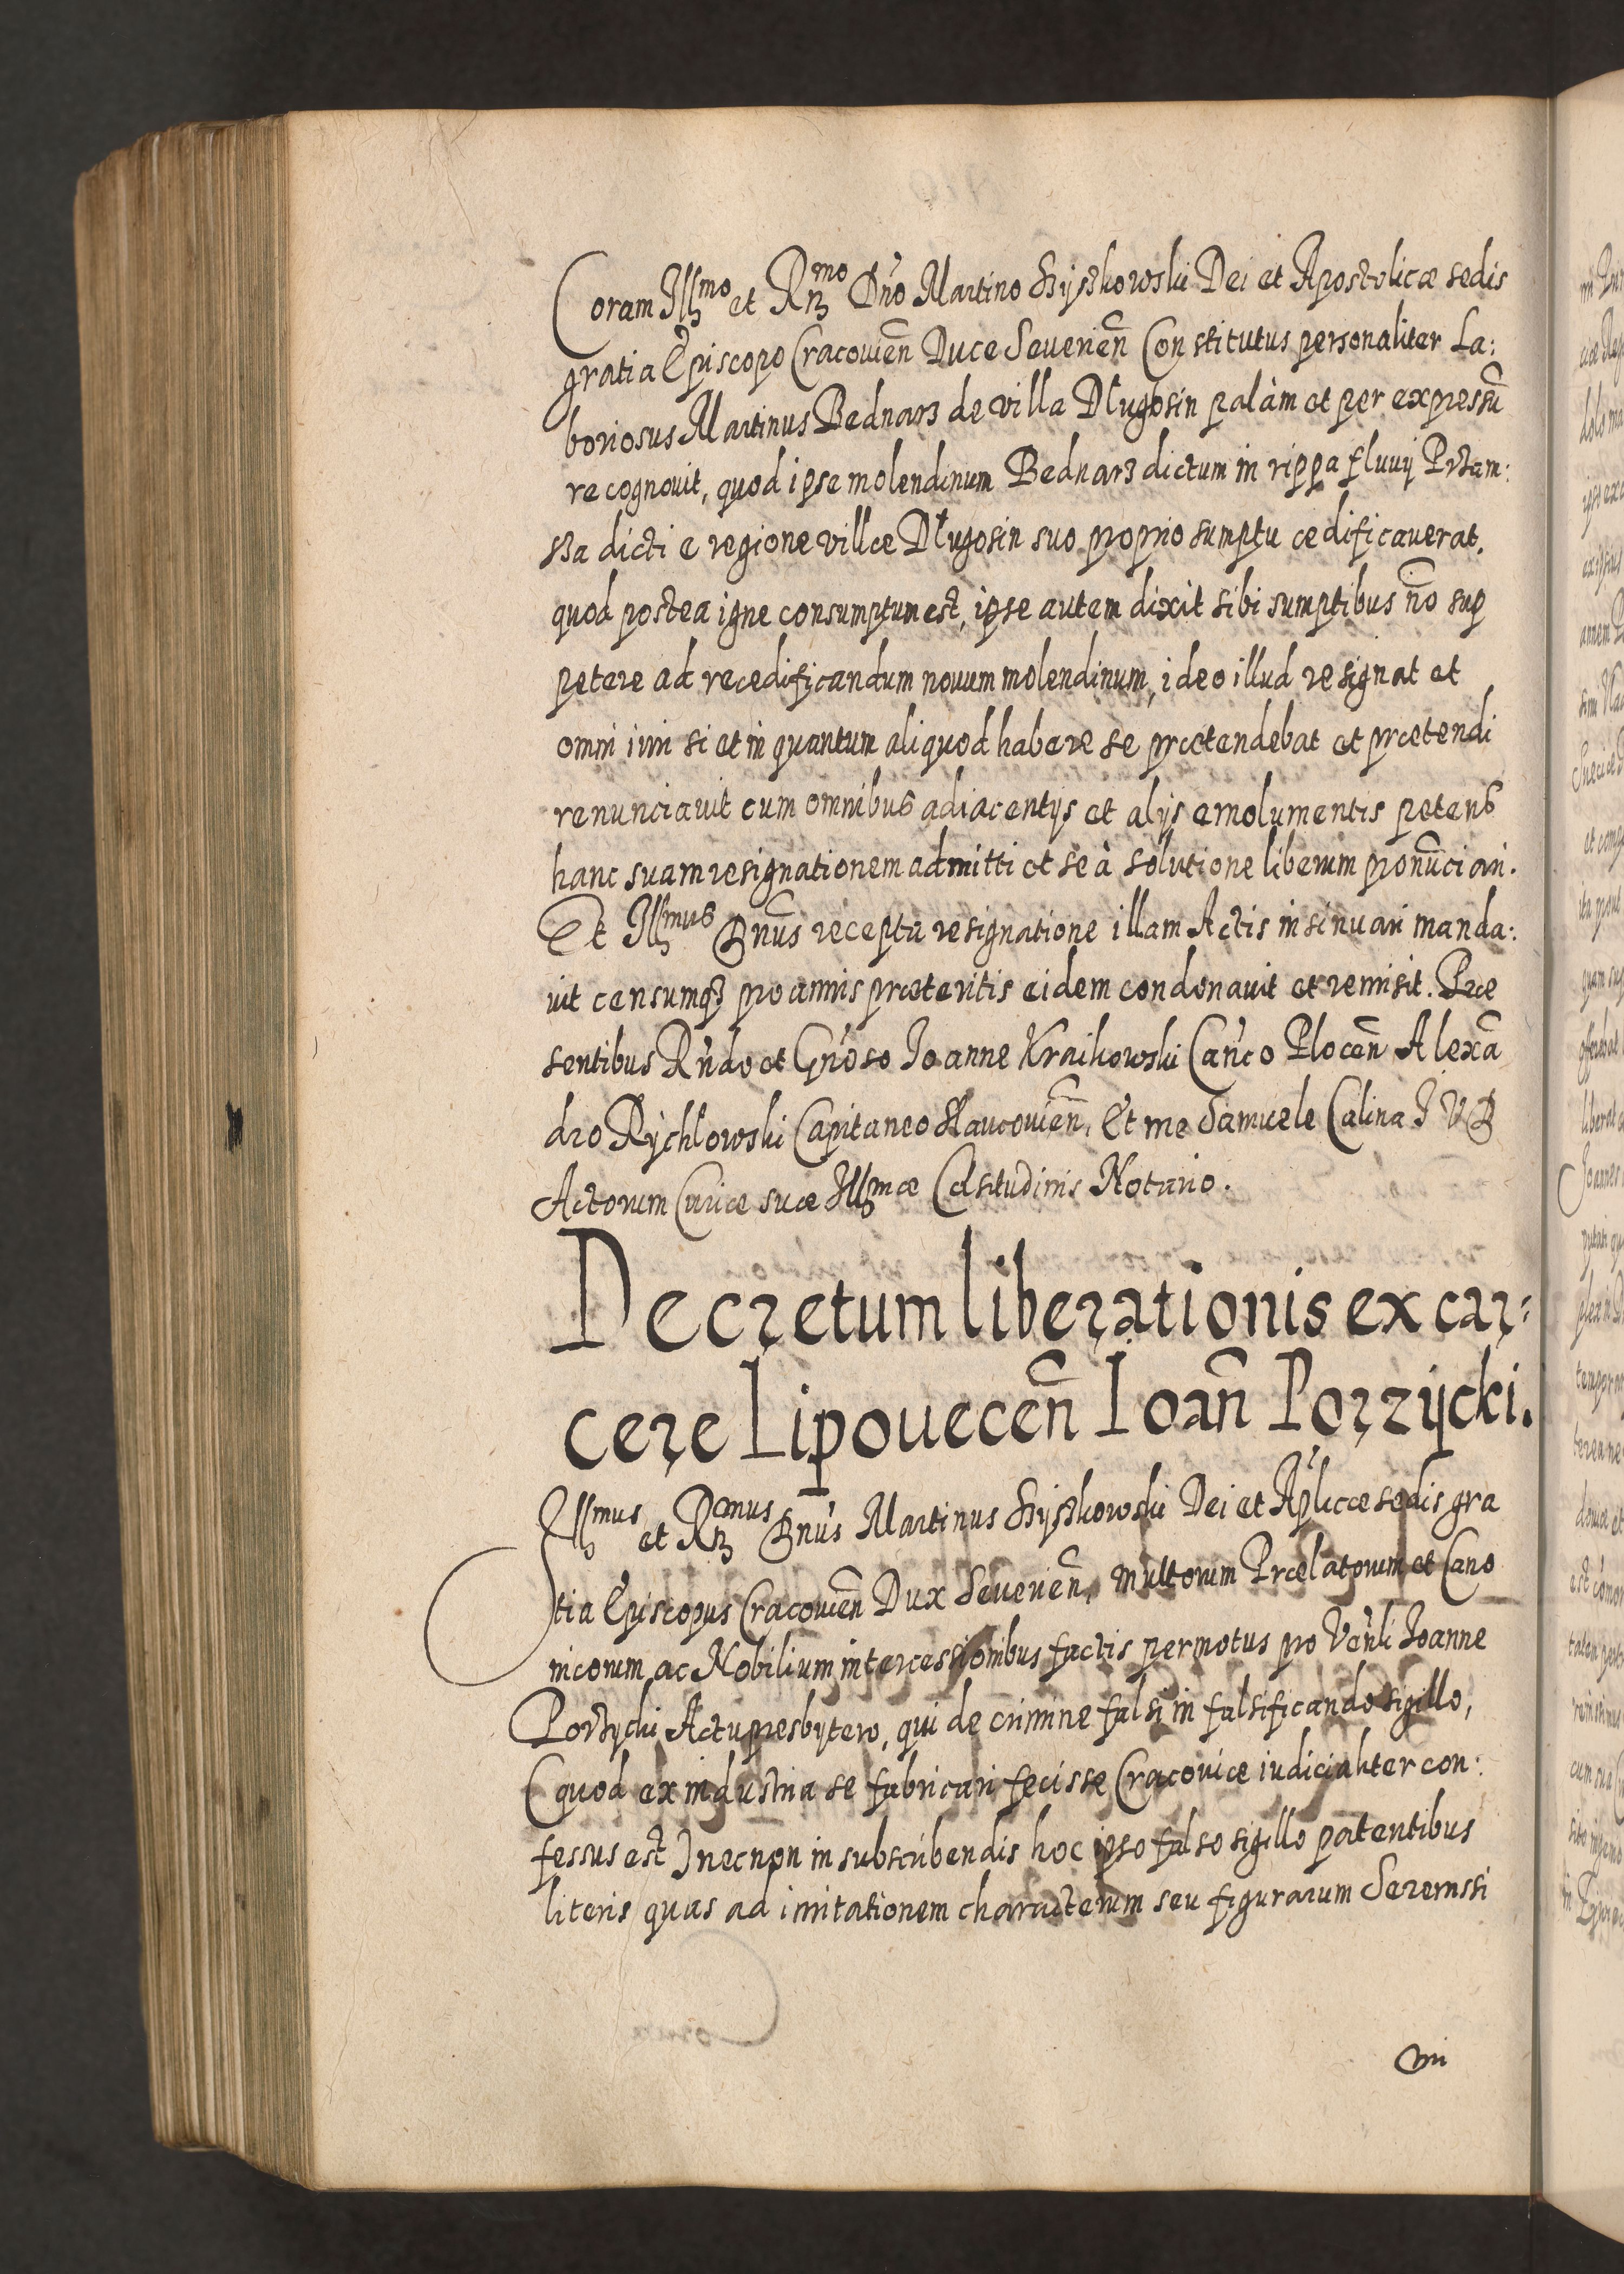 Coram Illmo et Rmo Dno Martino Szyszkowski Dei et Apostolicæ sedis
gratia Episcopo Cracouień Duce Seuerień Constitutus personaliter La:
boriosus Martinus Bednarz de villa Długosin palàm et per expressū
recognouit, quod ipse molendinum Bednarz dictum in rippa fluuij Przem:
sza dicti e regione villæ Długosin suo proprio sumptu ædificauerat.
quod postea igne consumptum est, ipse autem dixit sibi sumptibus nō sup
petere ad reædificandum nouum molendinum, ideo illud resignat et
omni iuri si et in quantum aliquod habere se prætendebat et prætendi
renunciauit cum omnibus adiacentijs et alijs emolumentis petens
hanc suam resignationem admitti et se à solutione liberum pronūciari.
Et Illmus Dnus recepta resignatione illam Actis insinuari manda:
uit censumqȝ pro annis præteritis eidem condonauit et remisit. Præ
sentibus Rndo et Gnoso Ioanne Kraikowski Canco Plocen̄ Alexā
dro Rychlowski Capitaneo Slaucouień, Et me Samuele Calina I V D
Actorum Curiæ suæ Illmæ Celsitudinis Notario.
Decretum liberationis ex car=
cere Lipouecen̄ Ioan̄ Porzycki.
Illmus et Rmus Dnus Martinus Szyszkowski Dei et Aplicæ sedis gra
tia Episcopus Cracouień Dux Seuerień, multorum Prælatorum et Cano
nicorum ac Nobilium intercessionibus factis permotus pro Venli Ioanne
Porzycki Actu presbytero, qui de crimine falsi in falsificando sigillo,
(quod ex industria se fabricari fecisse Cracouiæ iudicialiter con:
fessus est) necnon in subscribendis hoc ipso falso sigillo patentibus
literis quas ad imitationem characterum seu figurarum Serenssi
mi